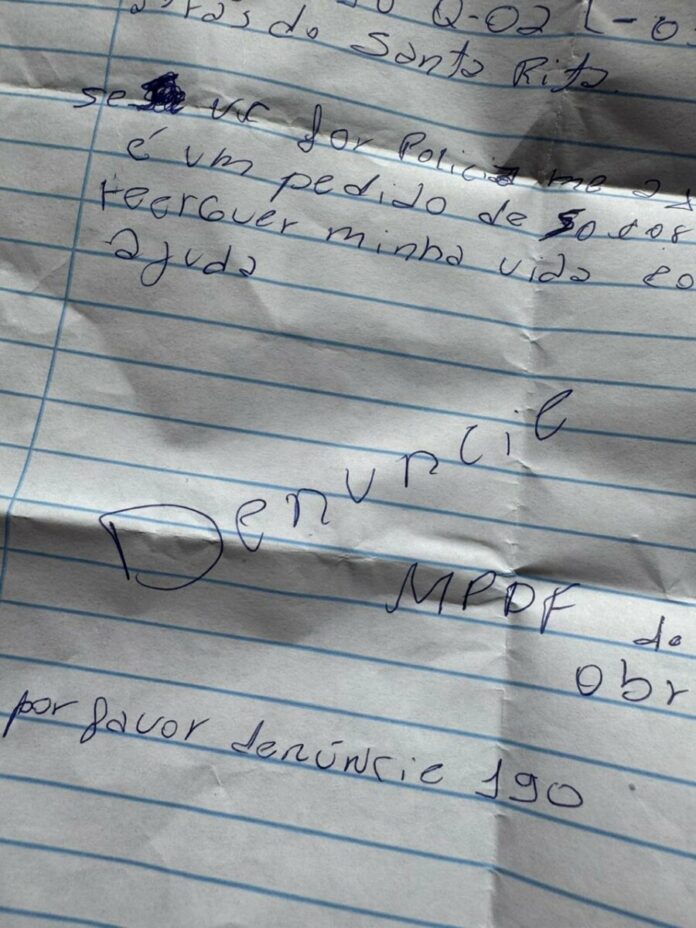 Q-02 L-0
atrás do Santa Rita
se vc for Policia me
é um pedido de socor
reerguer minha vida eo
ajuda
Denuncie
MPDF do
obr
por favor denúncie 190